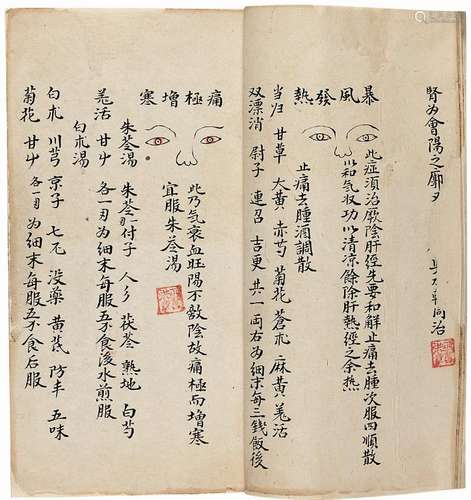 腎为會陽之廓又
同治
暴風發熱
此症須治厥陰肝經先要和解止痛去腫次服四順散
以和气収功以清凉餘除肝熱經之余热
止痛去腫酒調散
当归 甘草 大黄 赤芍 菊花 蒼朮 麻黄 羌活
双漂消 尉子 連召 吉更 共一両右为細末每三錢飯後
痛極增寒
此乃气衰血旺陽不敵陰故痛極而增寒
宜服朱苓湯
朱苓湯 朱苓 付子 人 茯苓 熟地 白芍
羌活 甘艸 各一刃为細末每服五不食後水煎服
白朮湯
白朮 川芎 京子 七 没藥 黄芪 防丰 五味
菊花 甘艸 各一刃为細末每服五不食后服